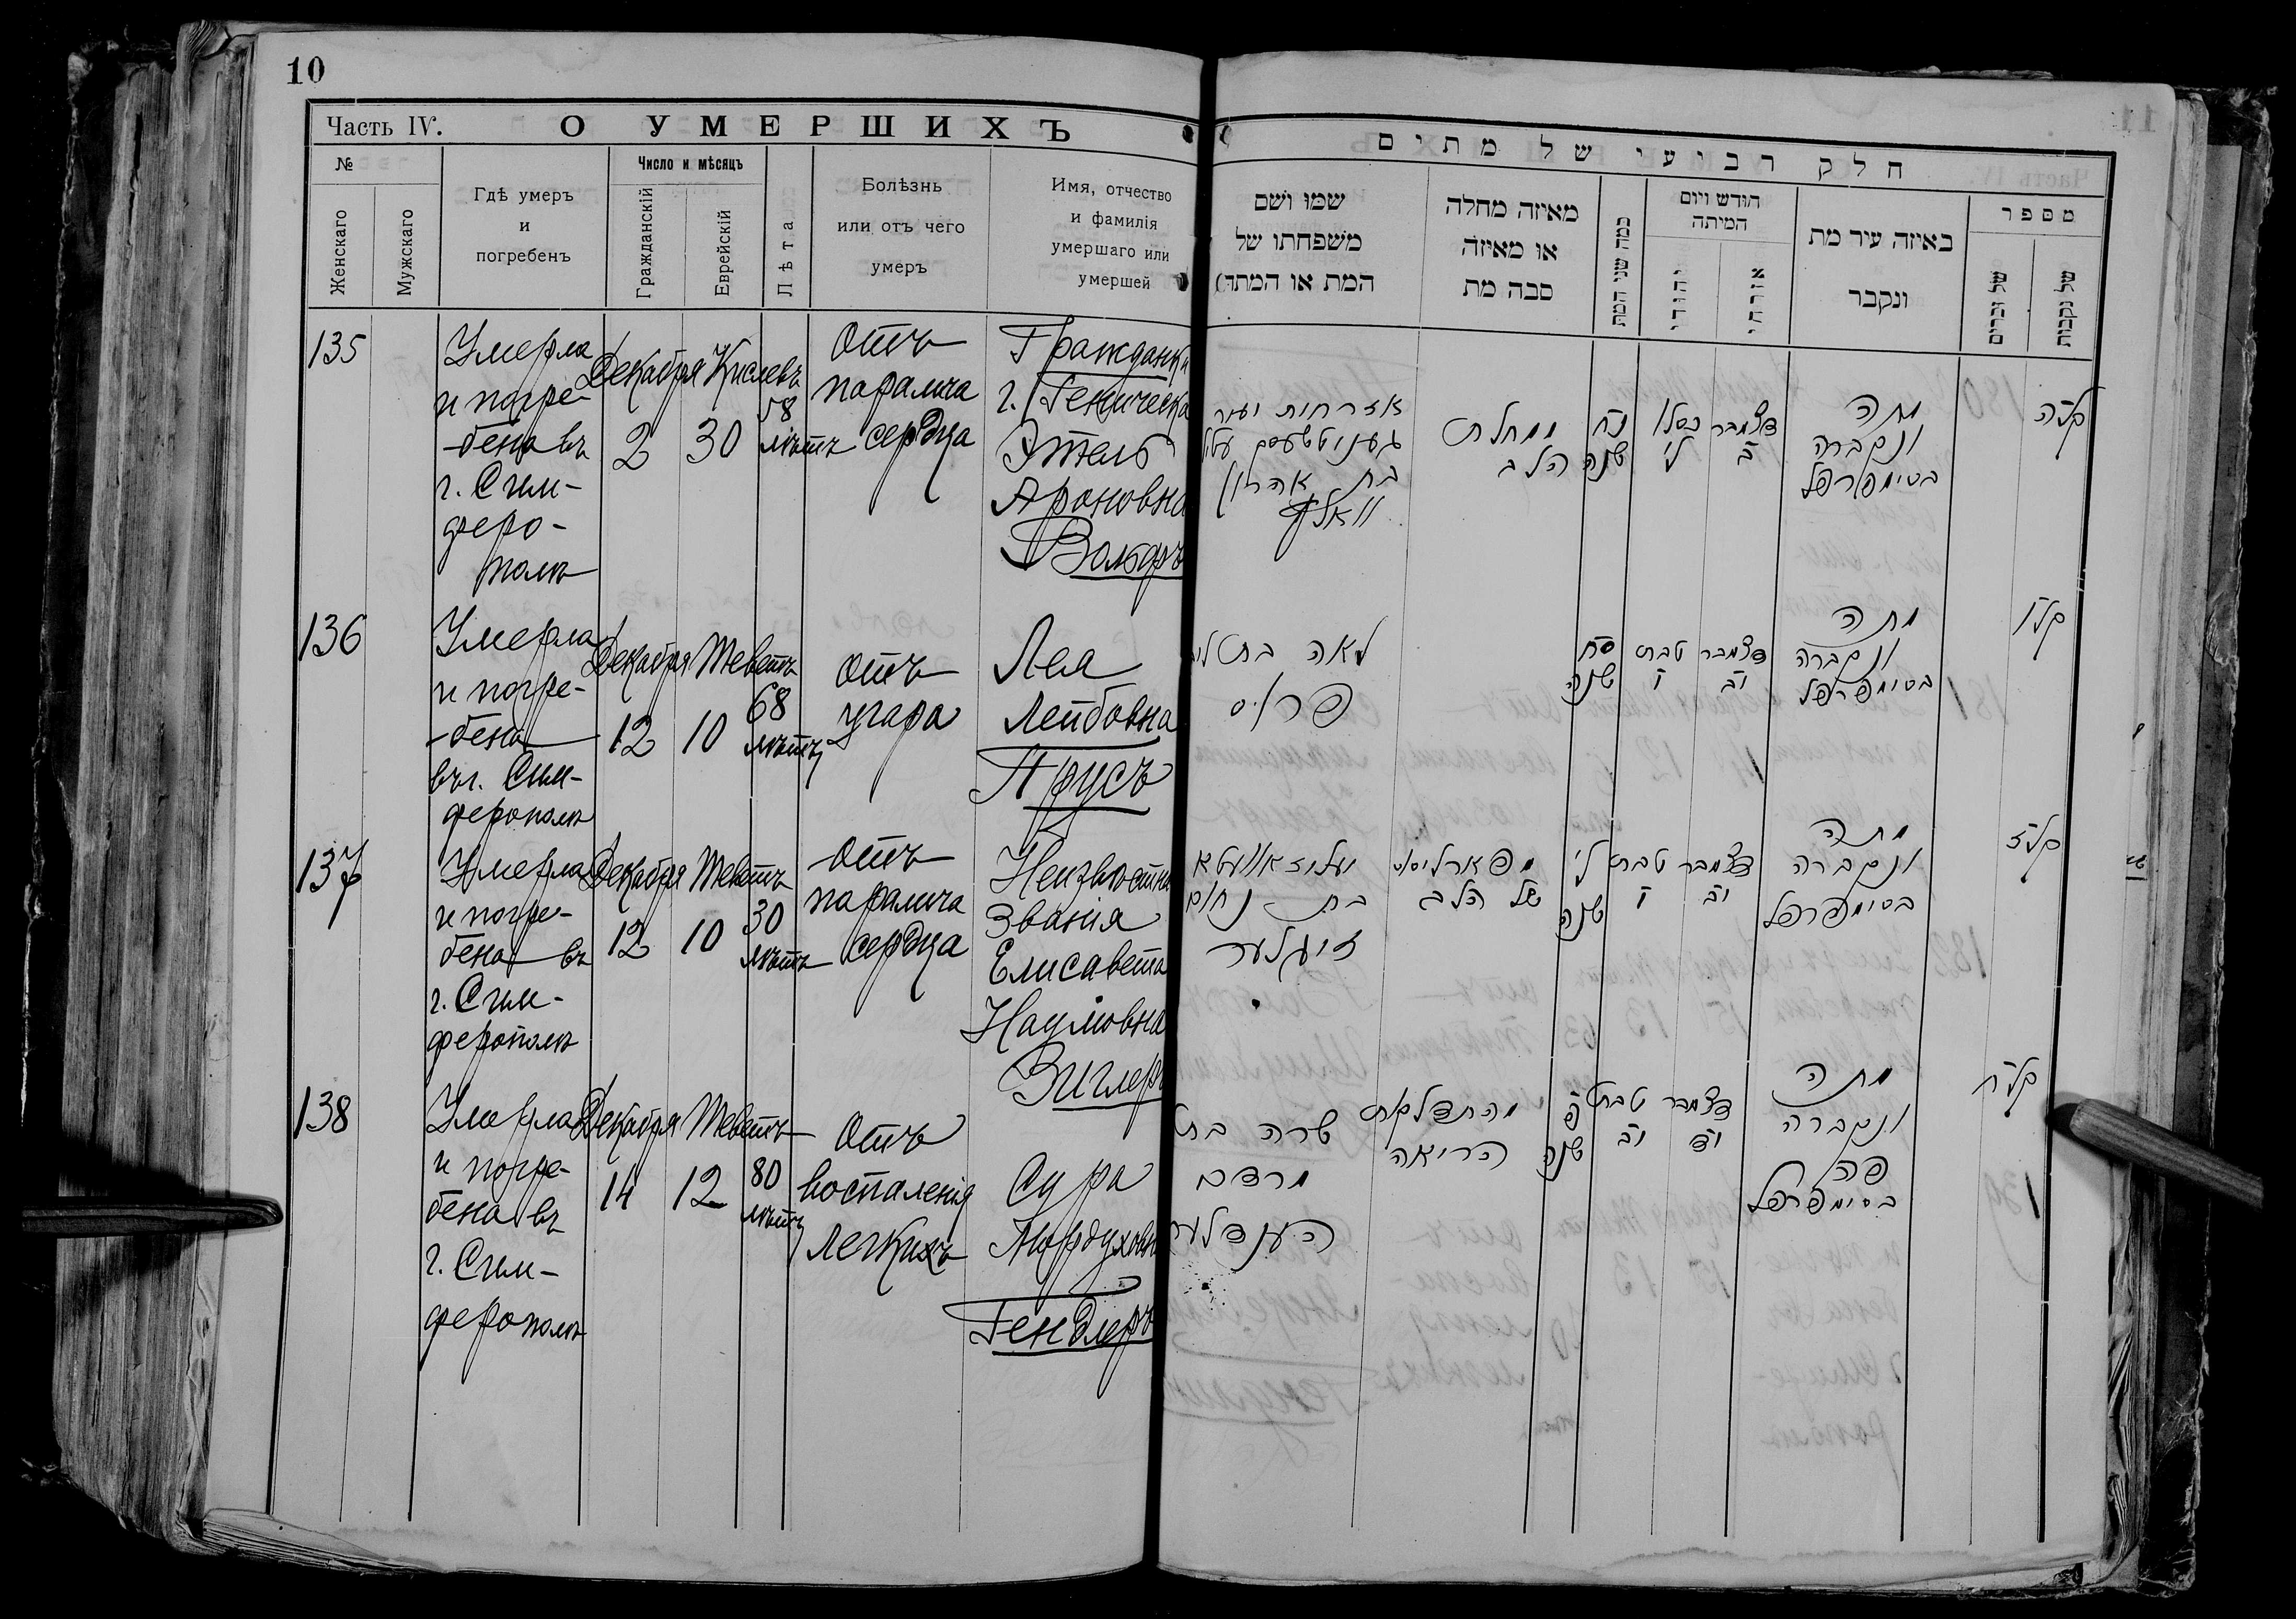 10
Часть IV.
О УМЕРШИХЪ
№
Женскаго
Мужскаго
Гдѣ умеръ
и
погребенъ
Число и мѣсяцъ
Гражданскій
Еврейскій
Лѣта
Болѣзнь
или отъ чего
умеръ
Имя, отчество
и фамилія
умершаго или
умершей
135
Умерла
и погре-
-бена въ
г. Сим-
феро-
полѣ
Декабря
2
Кислевъ
30
58
лѣтъ
Отъ
паралича
сердца
Гражданка
г. Геническа
Этель
Ароновна
Вольфъ
136
Умерла
и погре-
-бена
въ г. Сим-
ферополѣ
Декабря
12
Теветъ
10
68
лѣтъ
Отъ
угара
Лея
Лейбовна
Прусъ
137
Умерла
и погре-
бена въ
г. Сим-
ферополѣ
Декабря
12
Теветъ
10
30
лѣтъ
Отъ
паралича
сердца
Неизвѣстна
званія
Елисавета
Наумовна
Зиглеръ
138
Умерла
и погре-
бена въ
г. Сим-
ферополѣ
Декабря
14
Теветъ
12
80
лѣтъ
Отъ
воспаленія
легкихъ
Сура
Мордуховна
Гендлеръ
חלק רביעי של מתים
שמו ושם
משפחתו של
המת או המתה)
מאיזה מחלה
או מאיזה
סבה מת
כמה שני המת
חודש ויום
המיתה
יהודי
אזרחי
באיזה עיר מת
ונקבר
מספר
של זכרים
של נקבות
קלה
מתה
ונקברה
בסימפרפל
דצמבר
ב
כסלו
ל
נח
שנה
ממחלת
הלב
אזרחית
בת אהרון
וואלף
קלו
מתה
ונקברה
בסימפרפל
דצמבר
יב
טבת
י
סח
שנה
לאה בת
פרוס
קלז
מתה
ונקברה
בסימפרפל
דצמבר
יב
טבת
י
ל
שנה
של הלב
בת נחום
זיגלער
קלח
מתה
ונקברה
פה
בסימפרפל
דצמבר
יד
טבת
יב
פ
שנה
מהתדלקת
הריאה
שרה בת
מרדכ
הענדלער